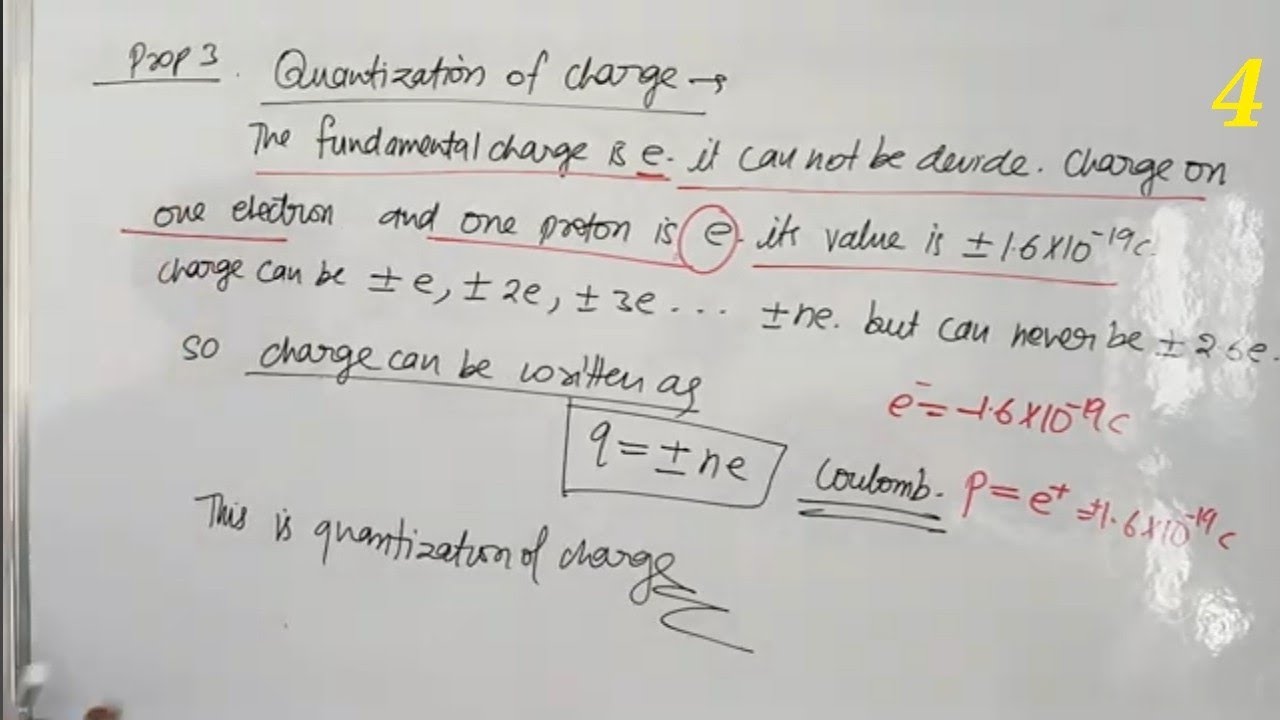 4
Prop 3. Quantization of charge →
The fundamental charge is e. it can not be devide. Charge on
one electron and one proton is e. its value is ±1.6×10⁻¹⁹c.
charge can be ±e, ±2e, ±3e... ±ne. but can never be ±2.6e.
so charge can be written as
q = ±ne Coulomb.
e⁻ = -1.6×10⁻¹⁹c
p = e⁺ = +1.6×10⁻¹⁹c
This is quantization of charge